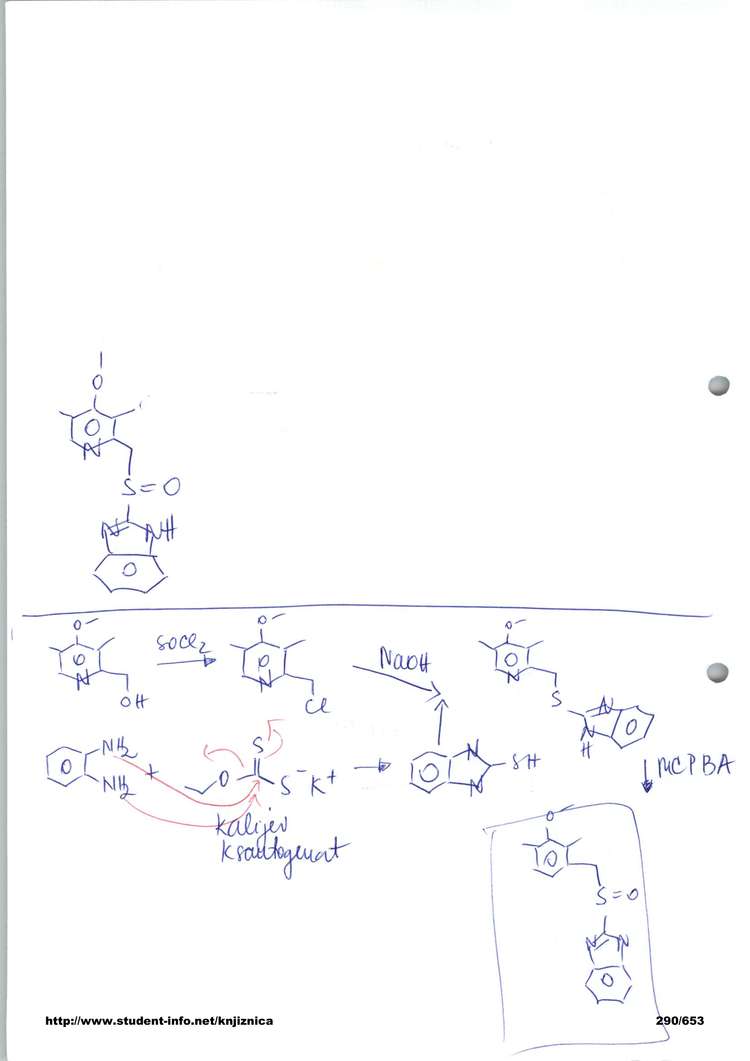 O
O
N
S=O
N NH
O
O
O
N
OH
SOCl2
O
O
N
Cl
NaOH
O
O
N
S
N
N
H
O
NH2
NH2
O
+
O
S
S- K+
Kalijev
Ksantogenat
O
N
N
SH
MCPBA
O
O
S=O
N N
O
http://www.student-info.net/knjiznica
290/653